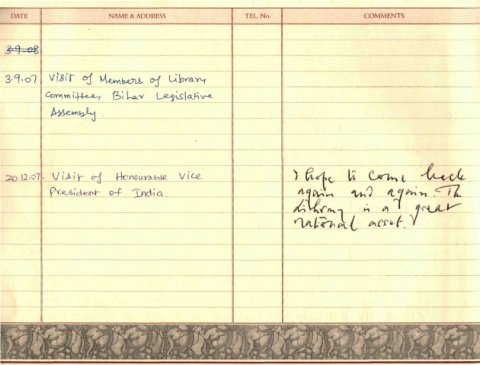 DATE NAME & ADDRESS TEL. No. COMMENTS
3-9-08
3.9.07 Visit of Members of Library
Committee, Bihar Legislative
Assembly.
20.12.07. Visit of Honourable Vice
President of India.
I hope to come back
again and again. The
library is a great
national asset.